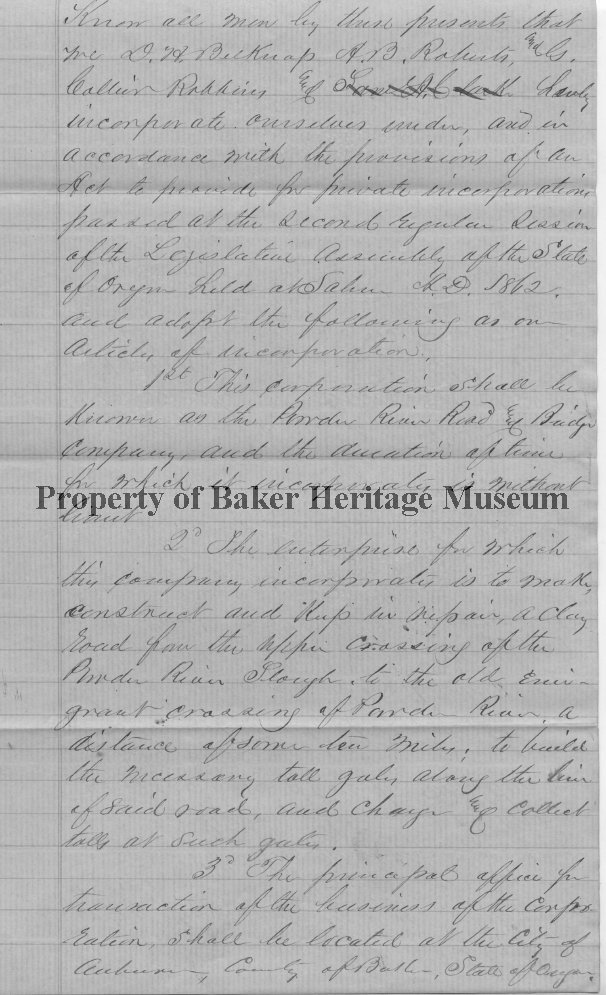 Know all men by these presents that
we D. H. Belknap A. B. Roberts, & G.
Collier Robbins & hereby
incorporate ourselves under, and in
accordance with the provisions of an
Act to provide for private incorporations
passed at the second regular session
of the Legislative Assembly of the State
of Oregon held at Salem A.D. 1862.
and adopt the following as our
Articles of incorporation.
1st This corporation shall be
known as the Powder River Road & Bridge
Company, and the duration of time
for which it incorporates is without
Property of Baker Heritage Museum
limit
2d The enterprise for which
this company incorporates is to make,
construct and keep in repair, a clay
road from the upper crossing of the
Powder River Slough to the old Emi-
grant crossing of Powder River, a
distance of some ten miles, to build
the necessary toll gates along the line
of said road, and charge & collect
tolls at such gates.
3d The principal office for
transaction of the business of the Corpo
ration, shall be located at the City of
Auburn, County of Baker, State of Oregon.